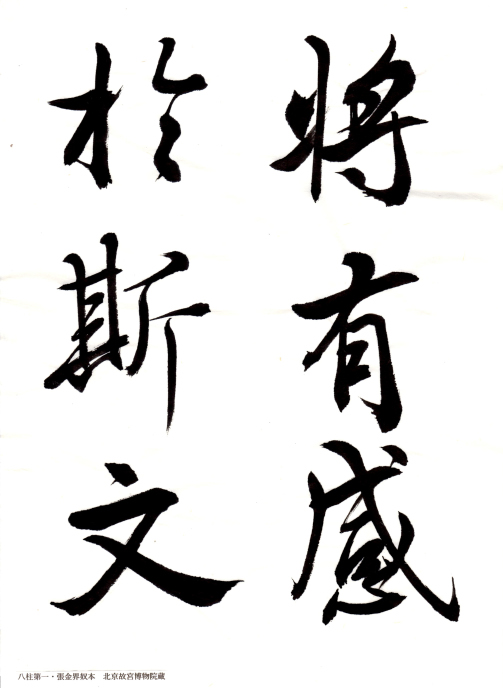 將有感
於斯文
八柱第一・張金界奴本 北京故宮博物院藏